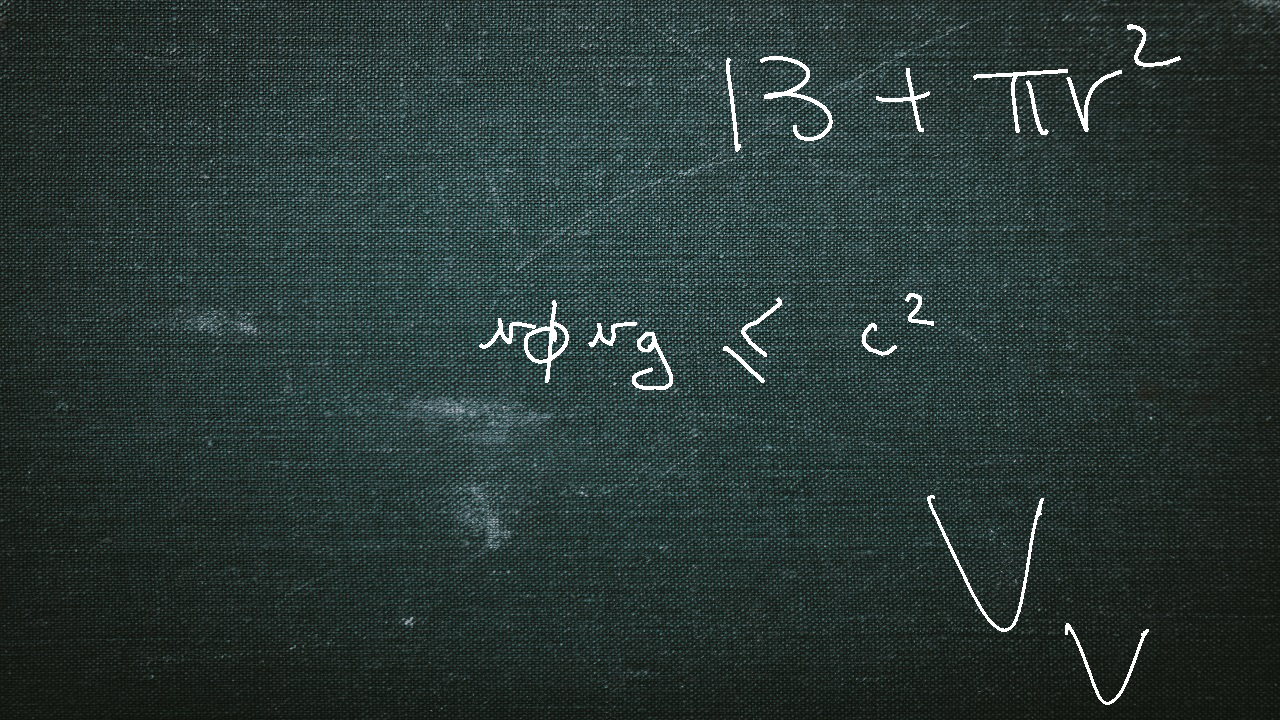 13 + πr²
vφ vg ⩽ c²
V_V